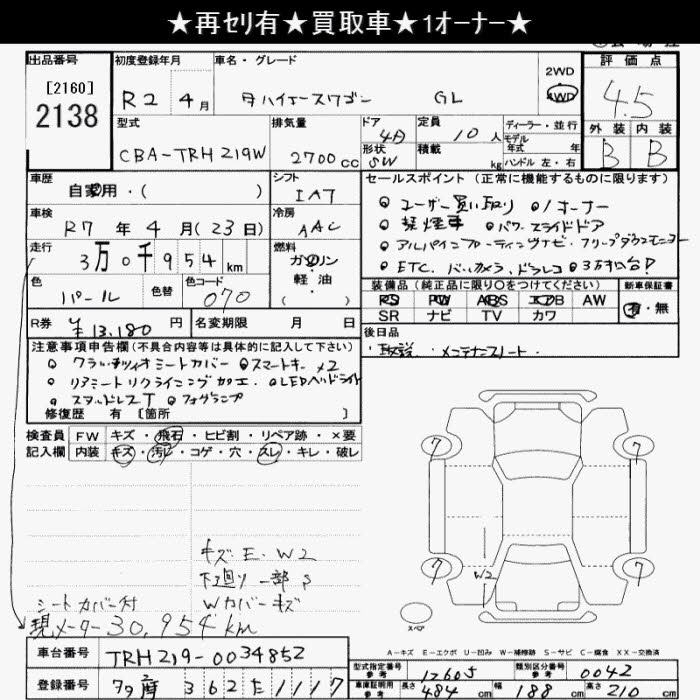 ★再セリ有★買取車★1オーナー★
出品番号 初度登録年月 車名・グレード 2WD 4WD 評価点
[2160]
2138
R2年4月 ハイエースワゴン GL 4.5
型式 排気量 ドア 4 定員 10人 ディーラー・並行 外装 内装
CBA-TRH219W 2700cc 形状 SW 積載 kg モデル年式 年 ハンドル 左・右 B B
車歴 自家用・( ) シフト IAT
車検 R7年4月(23日) 冷房 AAC
走行 3万0千954km 燃料 ガソリン・軽油・( )
色 パール 色替 色コード 070
R券 ¥13,180円 名変期限 月 日
セールスポイント(正常に機能するものに限ります)
○ユーザー買い取り ○1オーナー
○禁煙車 ○パワースライドドア
○アルパインフローティングナビ・フリップダウンモニター
○ETC・バックカメラ、ドラレコ ○3万キロ台!
装備品(純正品に限り○をつけてください) 新車保証書
RS PW ABS エアB AW 有・無
SR ナビ TV カワ
後日品
・取説 ・メンテナンスノート
注意事項申告欄(不具合内容等は具体的に記入して下さい)
○クラッツィオシートカバー ○スマートキー×2
○リアシートリクライニング加工 ○LEDヘッドライト
○スタッドレスT ○フォグランプ
修復歴 有 [箇所 ]
検査員記入欄 FW キズ・飛石・ヒビ割・リペア跡・×要
内装 キズ・汚レ・コゲ・穴・スレ・キレ・破レ
キズE・W2
下廻り一部S
Wカバーキズ
シートカバー付
現メーター30,954km
7 7
7 7
W2
スペア
A-キズ E-エクボ U-凹み W-補修跡 S-サビ C-腐食 XX-交換済
車台番号 TRH219-0034852
登録番号 362 た 1117
型式指定番号 参考 17605 類別区分番号 参考 0042
車庫証明用 参考 長さ 484cm 幅 188cm 高さ 210cm